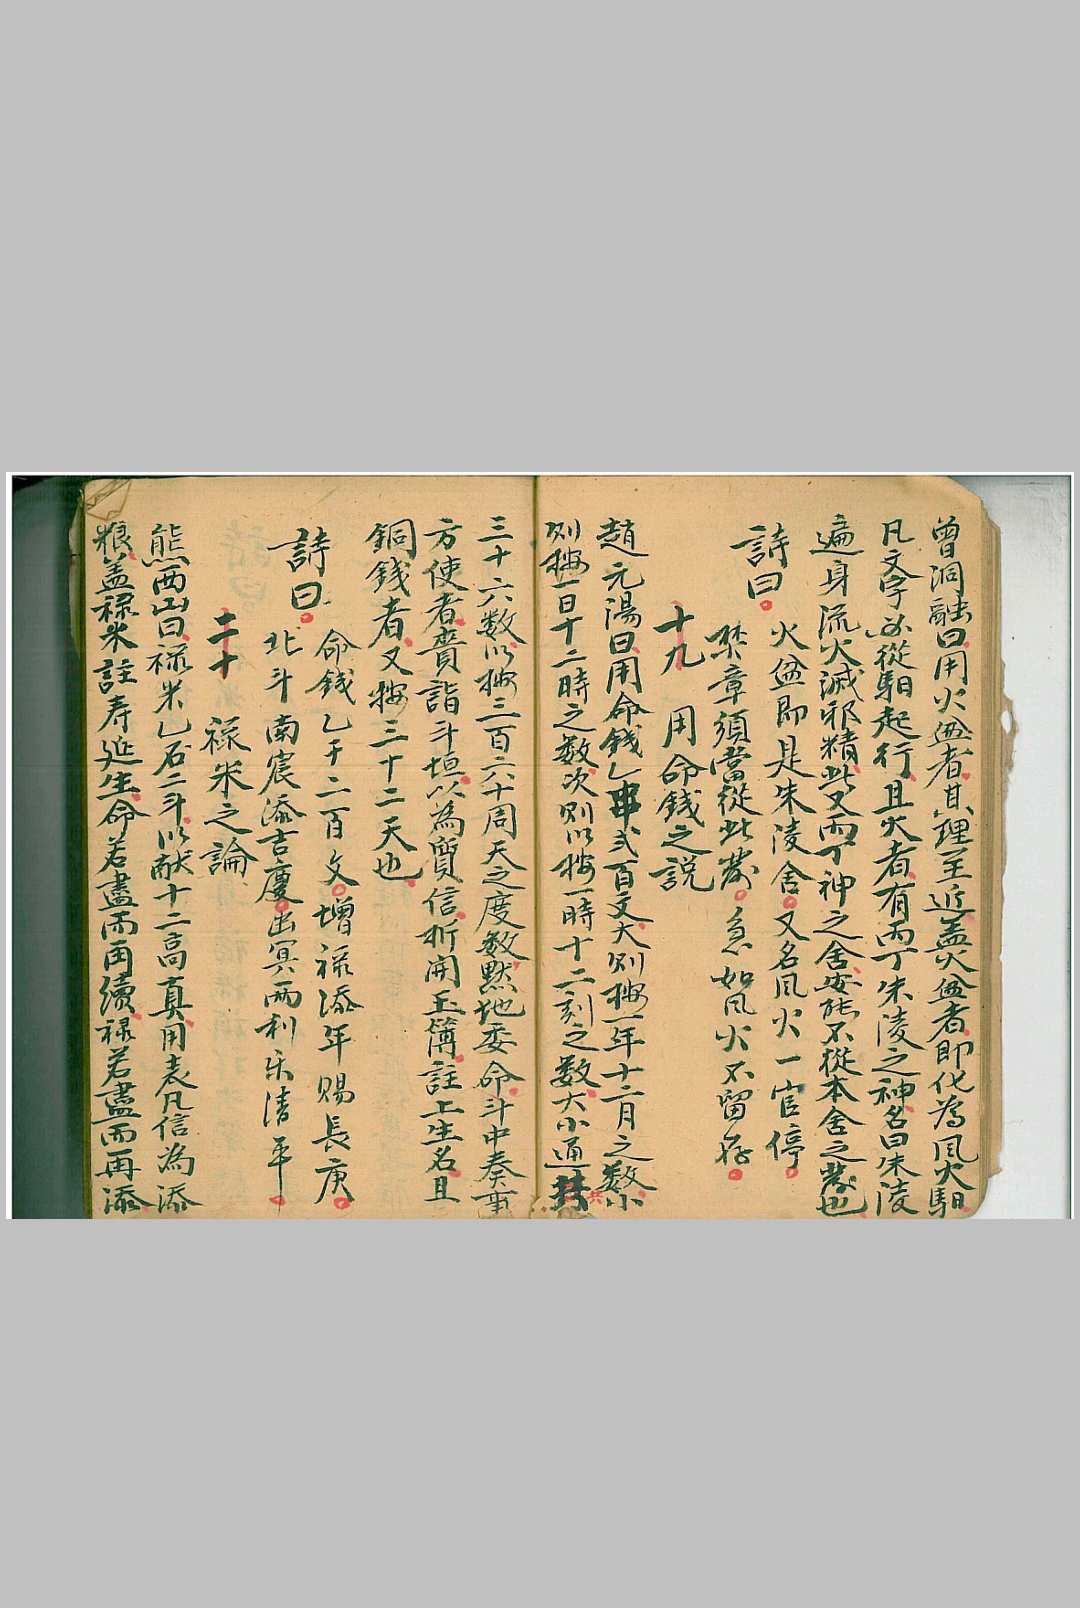 曾洞融曰用火盆者其理至近盖火盆者即化為風火馹
凡文字必從馹起行且火者有丙丁朱陵之神名曰朱陵
遍身流火滅邪精此又丙丁神之舍安能不從本舍之發也
詩曰
火盆即是朱陵舍又名風火一官停
焚章須當從此發急如風火不留存
十九 用命錢之説
趙元湯曰用命錢乙串弍百文大例按一年十二月之数小
例按一日十二時之数次則以按一時十二刻之数大小通共
三十六数以按三百六十周天之度数黙地委命斗中奏事
方使者賫詣斗垣以為質信折開玉簿註上生名且
銅錢者又按三十二天也
詩曰
命錢乙千二百文增禄添年賜長庚
北斗南宸添吉慶出冥兩利乐清平
二十 禄米之論
熊西山曰禄米乙石二斗以献十二高真用表凡信為添
粮盖禄米註寿延生命若盡而再續禄若盡而再添